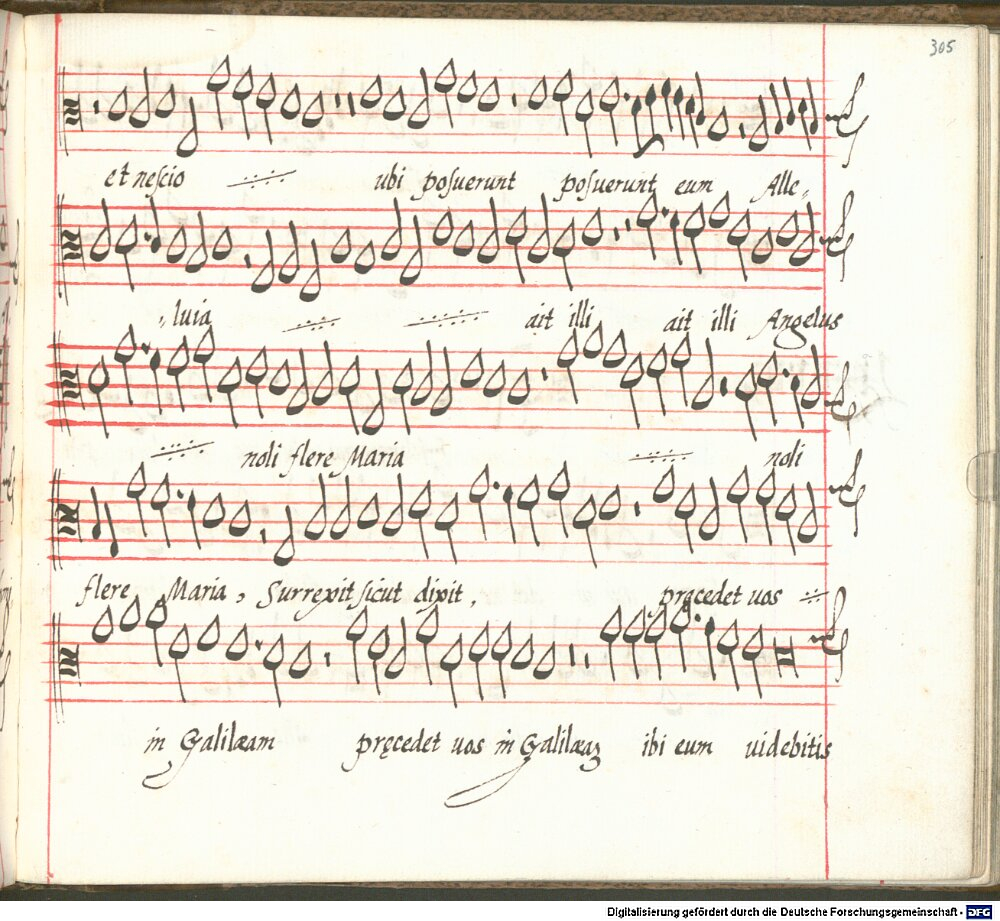 305
et nescio ubi posuerunt posuerunt eum Alle-
-luia ait illi ait illi Angelus
noli flere Maria noli
flere Maria, Surrexit sicut dixit, pręcedet uos
in Galilæam pręcedet uos in Galilæaʒ ibi eum uidebitis
Digitalisierung gefördert durch die Deutsche Forschungsgemeinschaft - DFG